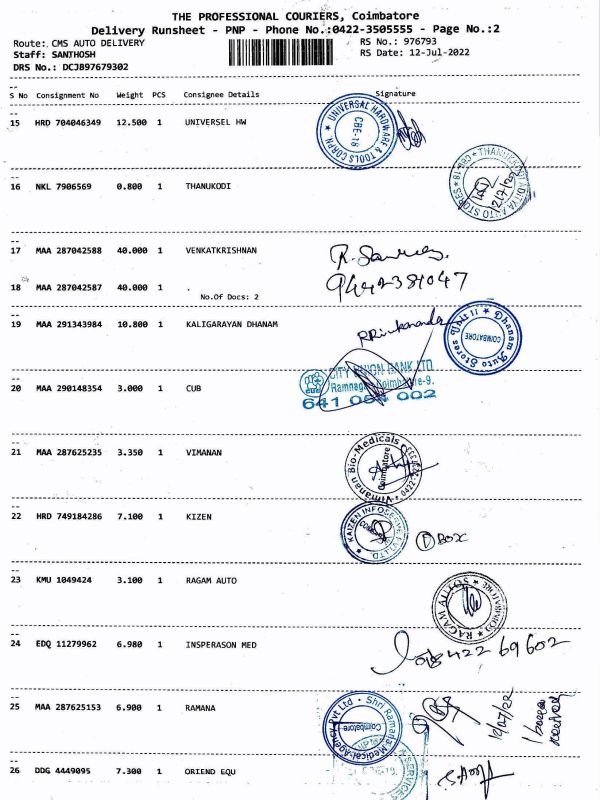 THE PROFESSIONAL COURIERS, Coimbatore
Delivery Runsheet - PNP - Phone No.:0422-3505555 - Page No.:2
Route: CMS AUTO DELIVERY
RS No.: 976793
Staff: SANTHOSH
RS Date: 12-Jul-2022
DRS No.: DCJ897679302
S No Consignment No Weight PCS Consignee Details Signature
15 HRD 704046349 12.500 1 UNIVERSEL HW
UNIVERSAL HARDWARE & TOOLS CORPN.
CBE-18
16 NKL 7906569 0.800 1 THANUKODI
12/7/22
17 MAA 287042588 40.000 1 VENKATKRISHNAN
18 MAA 287042587 40.000 1 .
No.Of Docs: 2
19 MAA 291343984 10.800 1 KALIGARAYAN DHANAM
Dhanam Auto Stores Unit II
COIMBATORE
20 MAA 290148354 3.000 1 CUB
CITY UNION BANK LTD
Coimbatore-9.
21 MAA 287625235 3.350 1 VIMANAN
Vimanan Bio-Medicals
Coimbatore
22 HRD 749184286 7.100 1 KIZEN
① BOX
23 KMU 1049424 3.100 1 RAGAM AUTO
RAGAM AUTOS
24 EDQ 11279962 6.980 1 INSPERASON MED
25 MAA 287625153 6.900 1 RAMANA
Shri Ramana Medical Agency Pvt Ltd
Coimbatore
26 DDG 4449095 7.300 1 ORIEND EQU
SERVICES